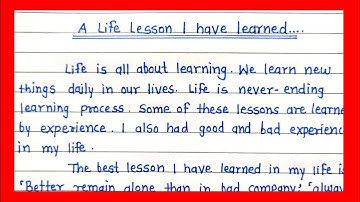 A Life Lesson I have learned....
Life is all about learning. We learn new
things daily in our lives. Life is never-ending
learning process. Some of these lessons are learne
by experience. I also had good and bad experienc
in my life.
The best lesson I have learned in my life is
'Better remain alone than in bad company,' 'alway